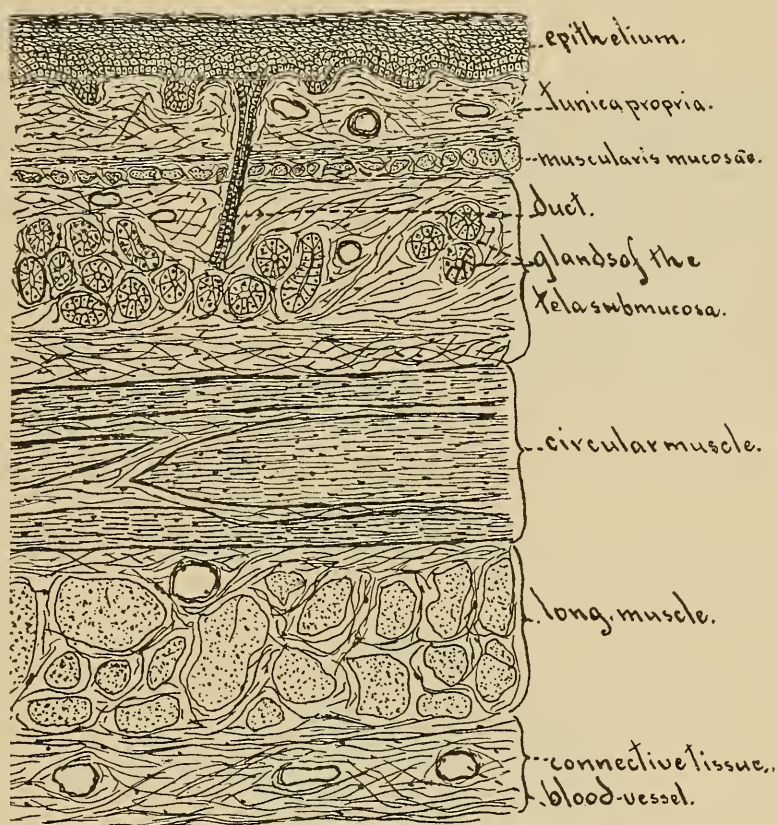 epithelium.
tunica propria.
muscularis mucosae.
duct.
glands of the
tela submucosa.
circular muscle.
long. muscle.
connective tissue,
blood-vessel.